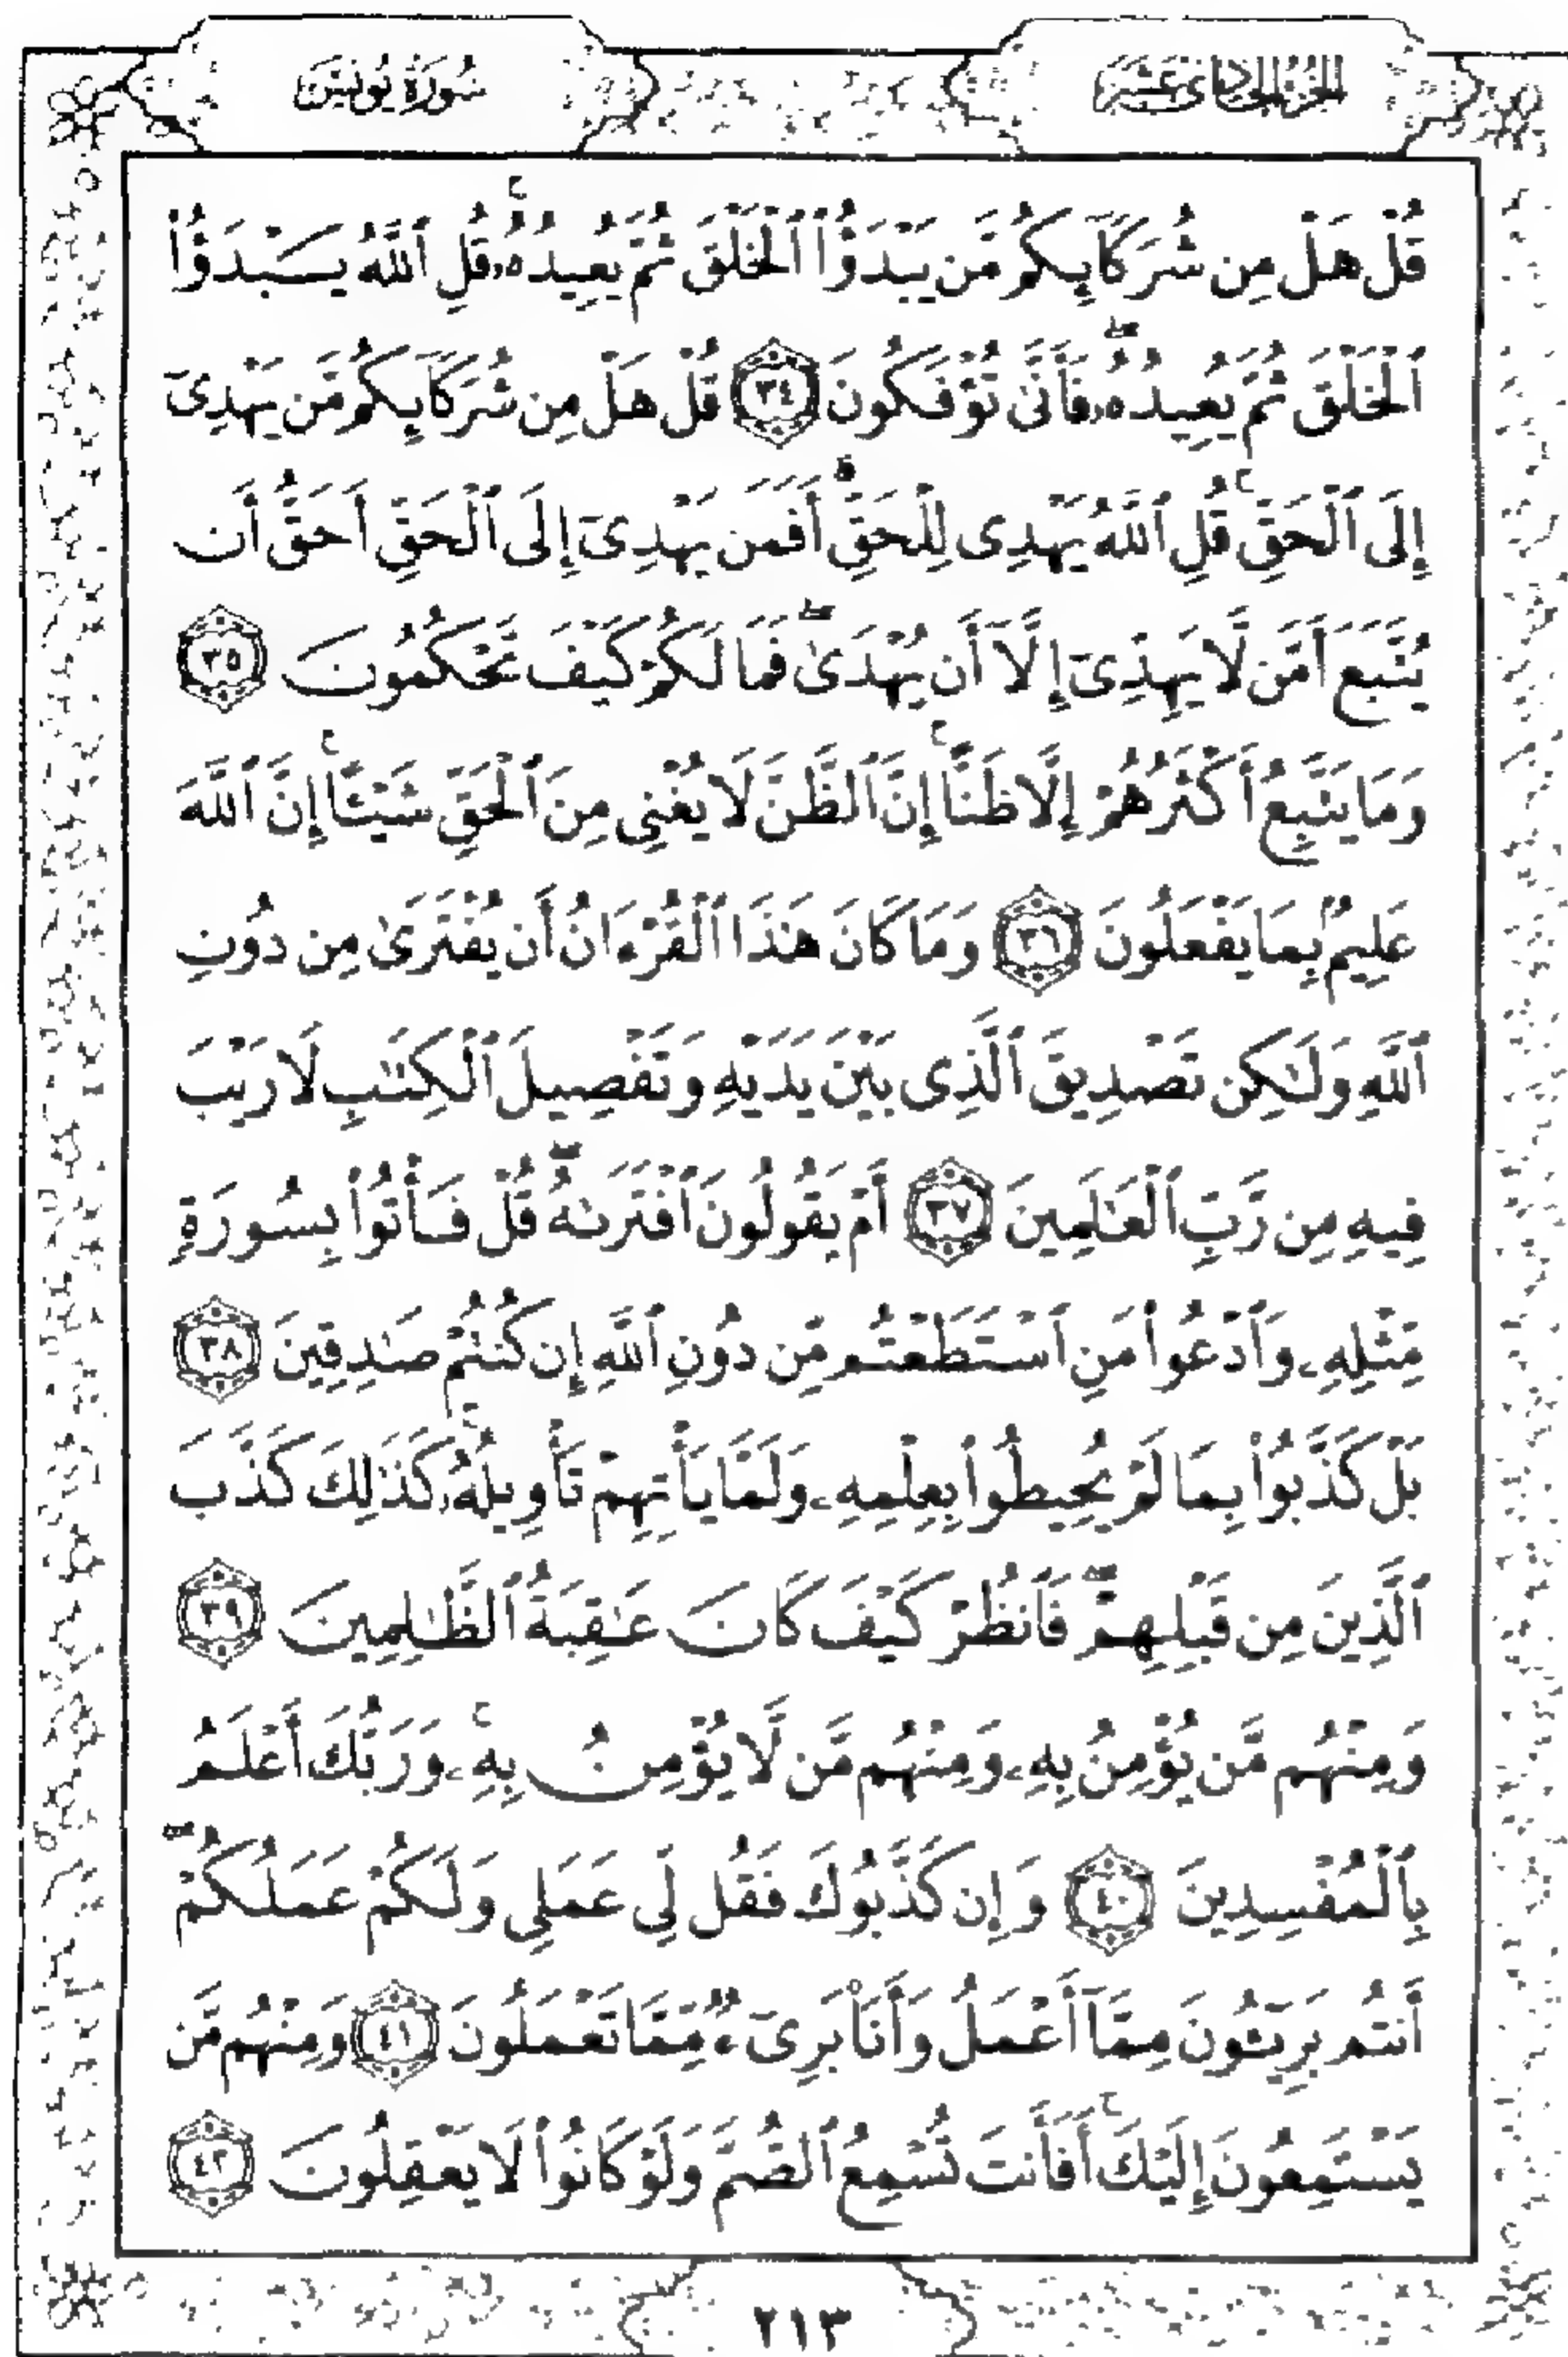 الجزء الحادي عشر
سورة يونس
قُلْ هَلْ مِن شُرَكَآئِكُم مَّن يَبْدَؤُا۟ ٱلْخَلْقَ ثُمَّ يُعِيدُهُۥ ۚ قُلِ ٱللَّهُ يَبْدَؤُا۟
ٱلْخَلْقَ ثُمَّ يُعِيدُهُۥ ۖ فَأَنَّىٰ تُؤْفَكُونَ ٣٤ قُلْ هَلْ مِن شُرَكَآئِكُم مَّن يَهْدِىٓ
إِلَى ٱلْحَقِّ ۚ قُلِ ٱللَّهُ يَهْدِى لِلْحَقِّ ۗ أَفَمَن يَهْدِىٓ إِلَى ٱلْحَقِّ أَحَقُّ أَن
يُتَّبَعَ أَمَّن لَّا يَهِدِّىٓ إِلَّآ أَن يُهْدَىٰ ۖ فَمَا لَكُمْ كَيْفَ تَحْكُمُونَ ٣٥
وَمَا يَتَّبِعُ أَكْثَرُهُمْ إِلَّا ظَنًّا ۚ إِنَّ ٱلظَّنَّ لَا يُغْنِى مِنَ ٱلْحَقِّ شَيْـًٔا ۚ إِنَّ ٱللَّهَ
عَلِيمٌۢ بِمَا يَفْعَلُونَ ٣٦ وَمَا كَانَ هَٰذَا ٱلْقُرْءَانُ أَن يُفْتَرَىٰ مِن دُونِ
ٱللَّهِ وَلَٰكِن تَصْدِيقَ ٱلَّذِى بَيْنَ يَدَيْهِ وَتَفْصِيلَ ٱلْكِتَٰبِ لَا رَيْبَ
فِيهِ مِن رَّبِّ ٱلْعَٰلَمِينَ ٣٧ أَمْ يَقُولُونَ ٱفْتَرَىٰهُ ۖ قُلْ فَأْتُوا۟ بِسُورَةٍ
مِّثْلِهِۦ وَٱدْعُوا۟ مَنِ ٱسْتَطَعْتُم مِّن دُونِ ٱللَّهِ إِن كُنتُمْ صَٰدِقِينَ ٣٨
بَلْ كَذَّبُوا۟ بِمَا لَمْ يُحِيطُوا۟ بِعِلْمِهِۦ وَلَمَّا يَأْتِهِمْ تَأْوِيلُهُۥ ۚ كَذَٰلِكَ كَذَّبَ
ٱلَّذِينَ مِن قَبْلِهِمْ ۖ فَٱنظُرْ كَيْفَ كَانَ عَٰقِبَةُ ٱلظَّٰلِمِينَ ٣٩
وَمِنْهُم مَّن يُؤْمِنُ بِهِۦ وَمِنْهُم مَّن لَّا يُؤْمِنُ بِهِۦ ۚ وَرَبُّكَ أَعْلَمُ
بِٱلْمُفْسِدِينَ ٤٠ وَإِن كَذَّبُوكَ فَقُل لِّى عَمَلِى وَلَكُمْ عَمَلُكُمْ ۖ
أَنتُم بَرِيٓـُٔونَ مِمَّآ أَعْمَلُ وَأَنَا۠ بَرِىٓءٌ مِّمَّا تَعْمَلُونَ ٤١ وَمِنْهُم مَّن
يَسْتَمِعُونَ إِلَيْكَ ۚ أَفَأَنتَ تُسْمِعُ ٱلصُّمَّ وَلَوْ كَانُوا۟ لَا يَعْقِلُونَ ٤٢
٢١٣